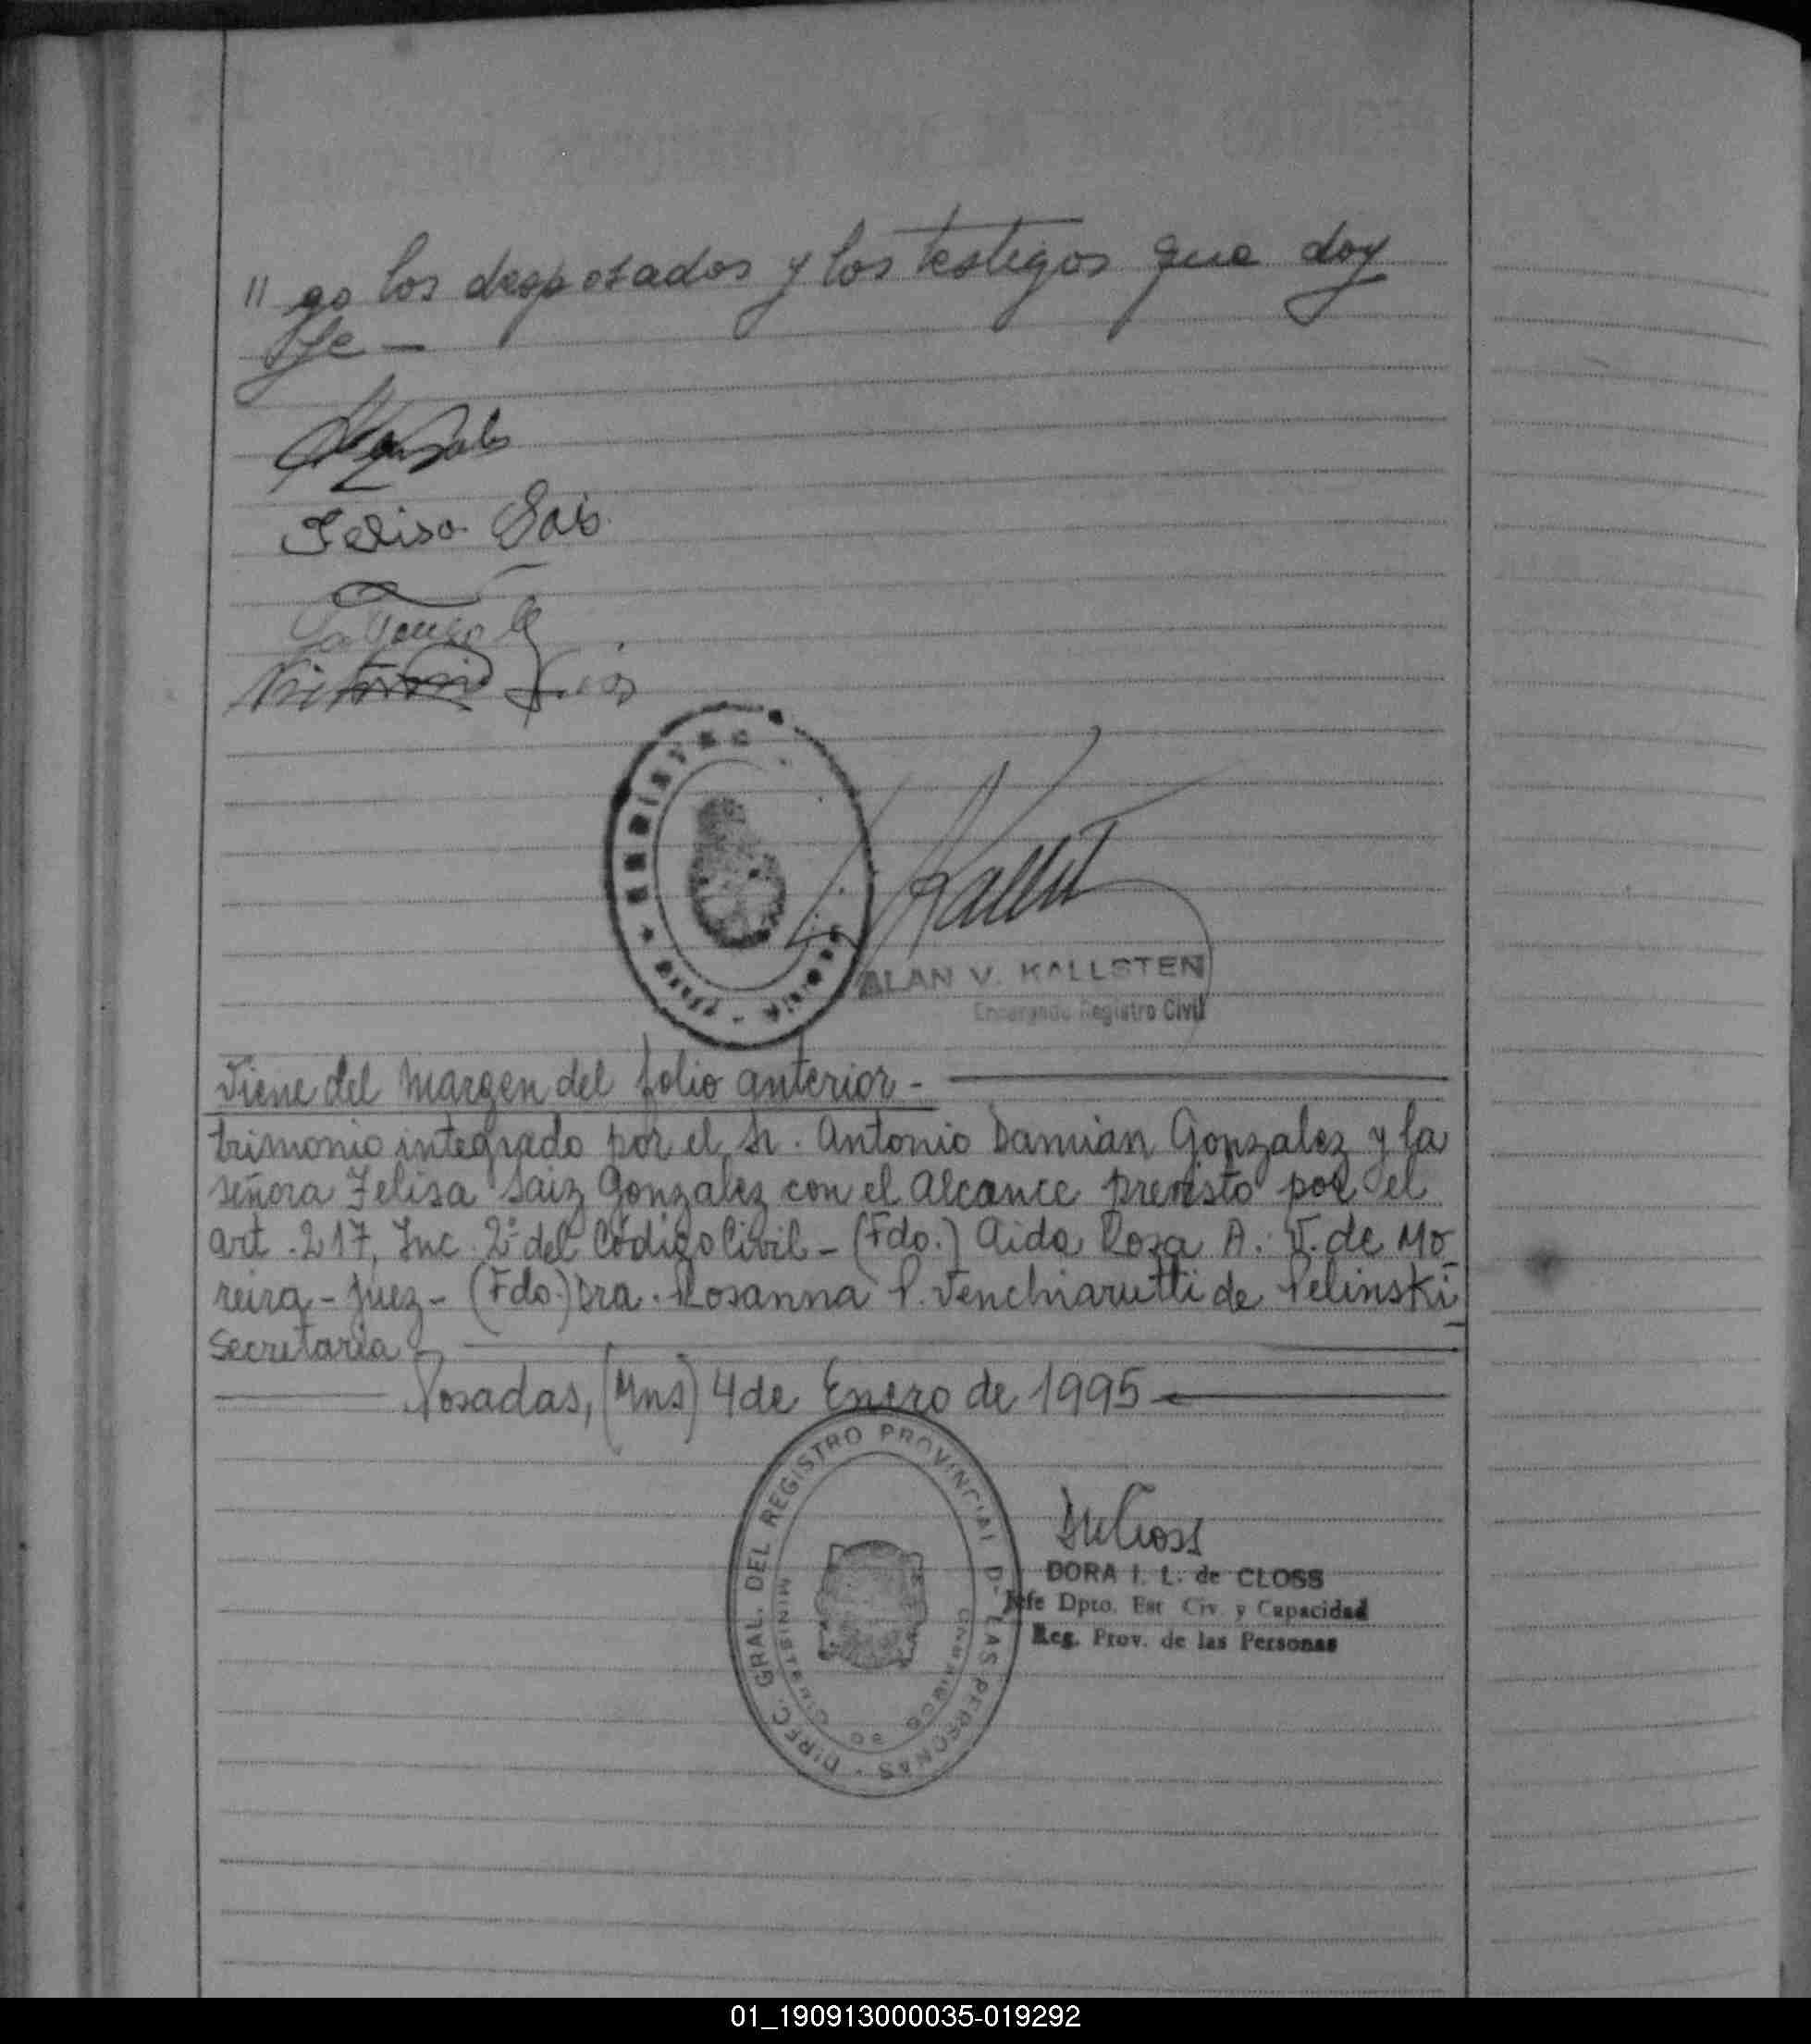 " go los desposados y los testigos que doy
fe —
Felisa Sais
REGISTRO
ALAN V. KALLSTEN
Encargado Registro Civil
Viene del margen del folio anterior -
trimonio integrado por el Sr. Antonio Damian Gonzalez y la
señora Felisa Saiz Gonzalez con el Alcance previsto por el
art. 217, Inc. 2° del Código Civil - (Fdo.) Aida Rosa A. V. de Mo
reira - Juez - (Fdo.) Dra. Rosanna P. Venchiarutti de Pelinski
Secretaria
Posadas, (Mns) 4 de Enero de 1995
DIREC. GRAL. DEL REGISTRO PROVINCIAL DE LAS PERSONAS
MINISTERIO DE GOBIERNO
DORA I. L. de CLOSS
Jefe Dpto. Est Civ. y Capacidad
Reg. Prov. de las Personas
01_190913000035-019292